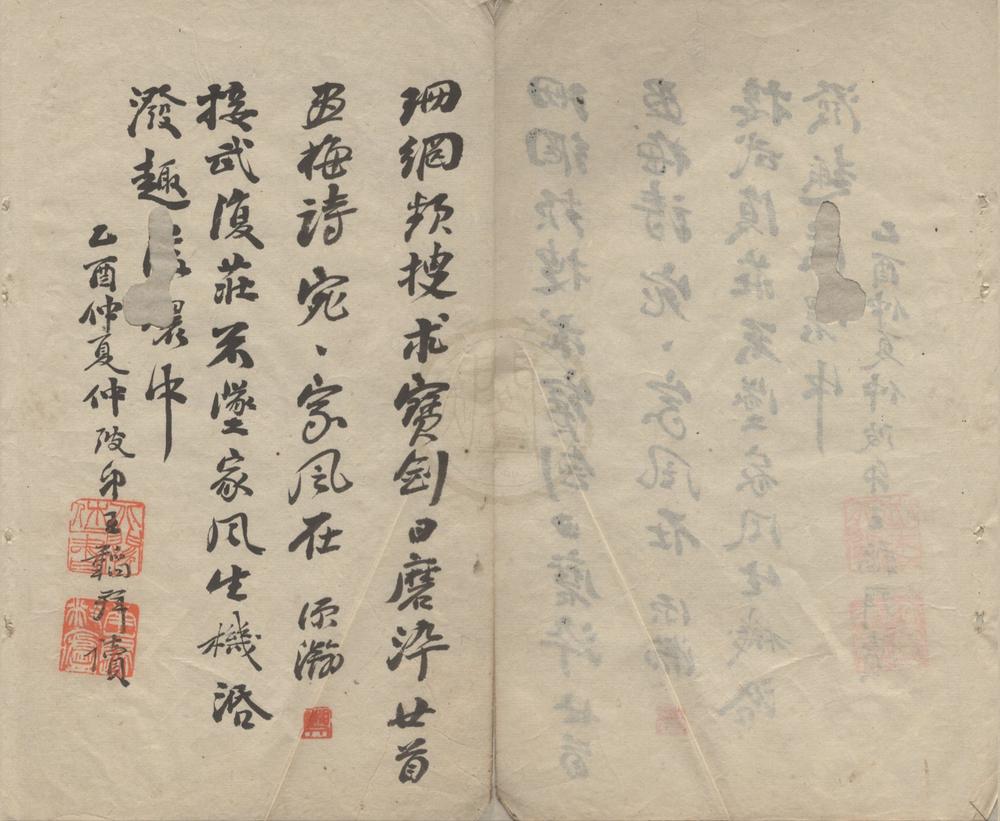 珊網頻搜求寶劍日磨淬廿首
畫梅詩宛、家風在 源瀚
接武復莊不墜家風生機活
潑趣 中
乙酉仲夏仲陂 王韜拜讀